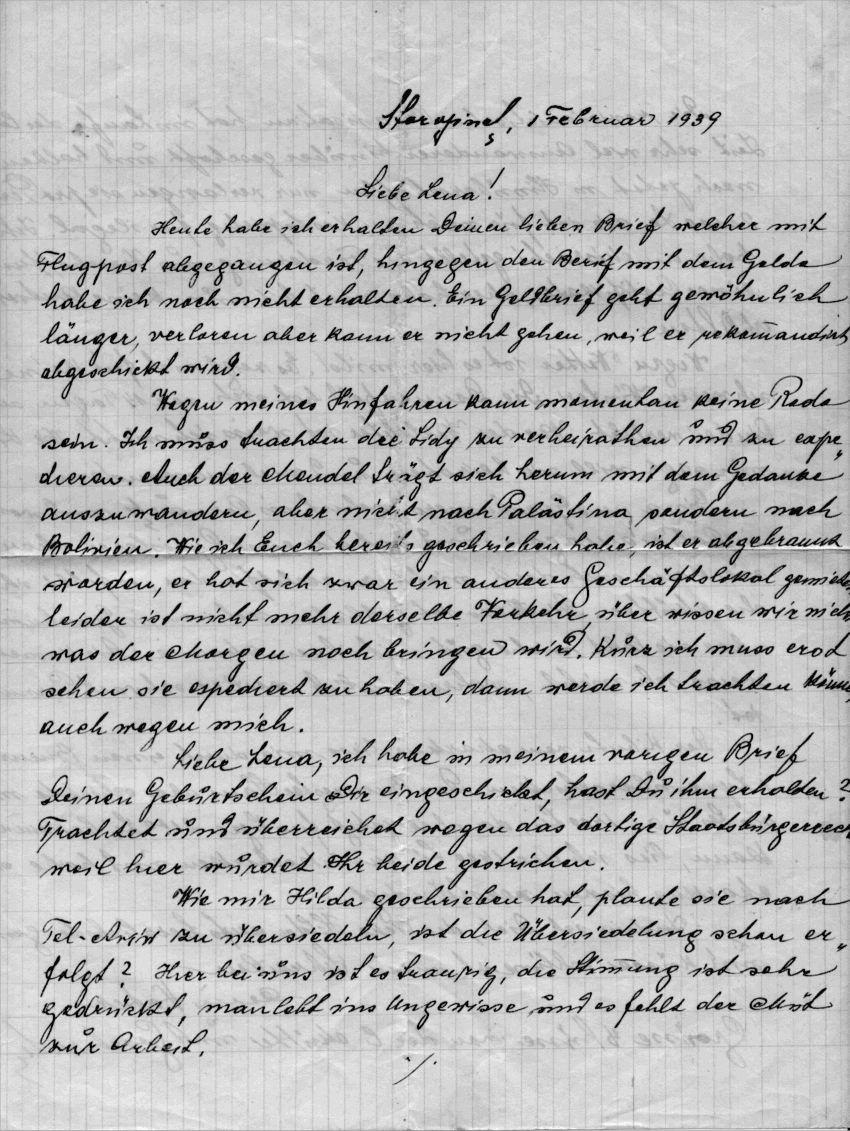 Storojineţ, 1 Februar 1939
Liebe Lena!
Heute habe ich erhalten Deinen lieben Brief welcher mit
Flugpost abgegangen ist, hingegen den Berief mit dem Gelde
habe ich noch nicht erhalten. Ein Geldbrief geht gewöhnlich
länger, verloren aber kann er nicht gehen, weil er rekom̄andirt
abgeschickt wird.
Wegen meines Hinfahren kann momentan keine Rede
sein. Ich muss trachten die Sidy zu verheirathen und zu expe"
dieren. Auch der Mendel trägt sich herum mit dem Gedanke
auszuwandern, aber nicht nach Palästina, sondern nach
Bolivien. Wie ich Euch bereits geschrieben habe, ist er abgebrannt
worden, er hat sich zwar ein anderes Geschäftslokal gemietet,
leider ist nicht mehr derselbe Verkehr, über wissen wir nicht
was der Morgen noch bringen wird. Kurz ich muss erst
sehen sie expediert zu haben, dann werde ich trachten können
auch wegen mich.
Liebe Lena, ich habe in meinem vorigen Brief
Deinen Geburtschein Dir eingeschickt, hast Du ihm erhalten?
Trachtet und überreichet wegen das dortige Staatsbürgerrech
weil hier wurdet Ihr beide gestrichen.
Wie mir Hilda geschrieben hat, plante sie nach
Tel-Aviv zu übersiedeln, ist die Übersiedelung schon er"
folgt? Hier bei uns ist es traurig, die Stim̄ung ist sehr
gedrückt, man lebt ins Ungewisse und es fehlt der Mut
zur Arbeit.
./.